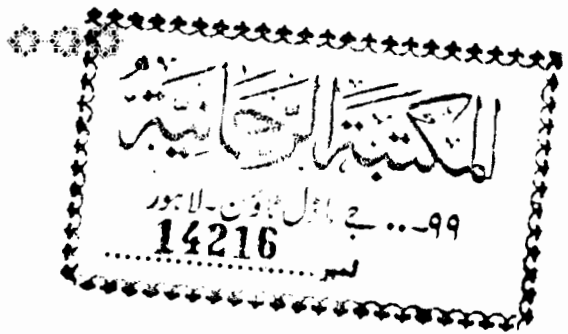 المكتبة الرحمانية
۹۹-.. جے ماڈل ٹاؤن-لاہور
14216
نمبر ....................